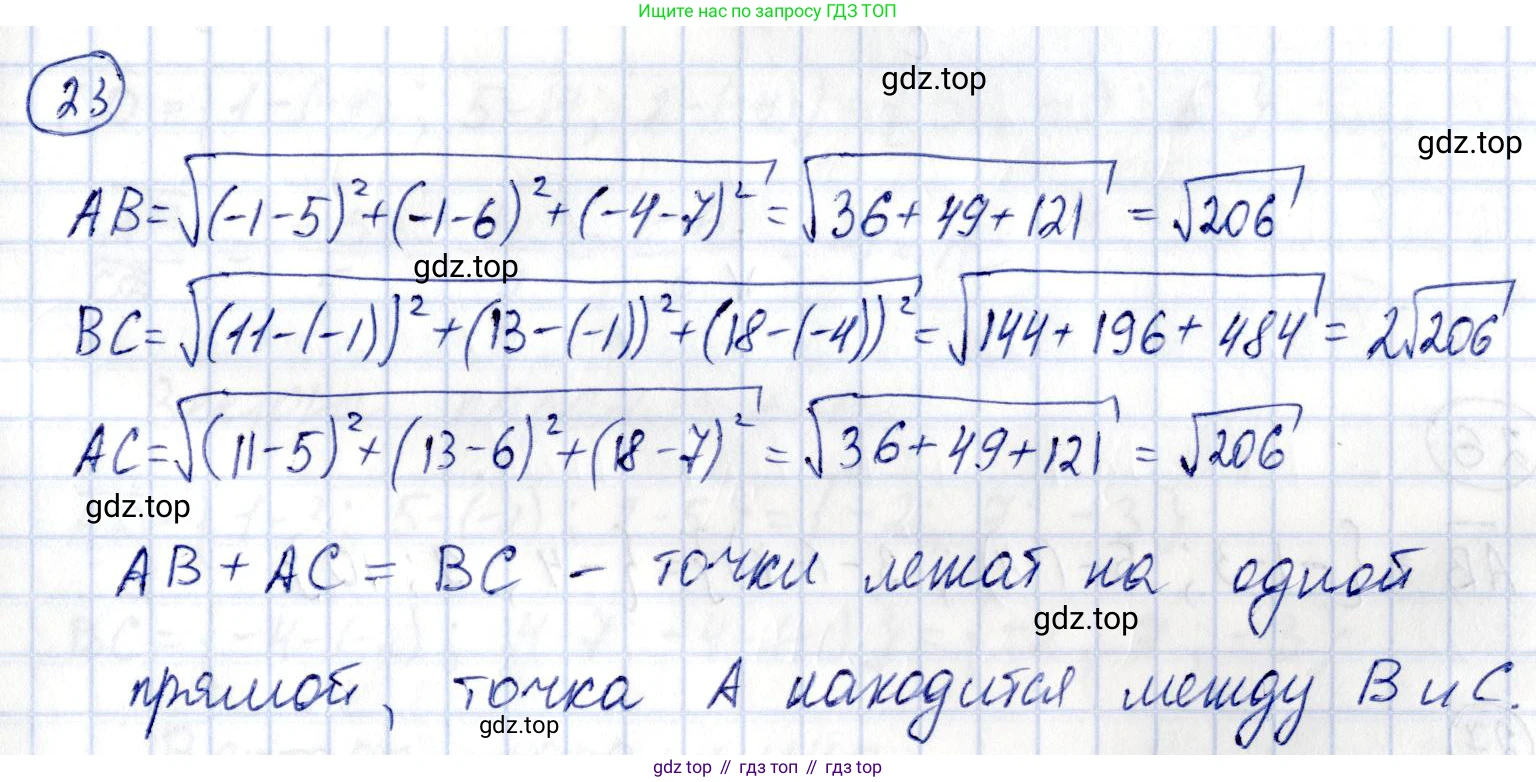 Ищите нас по запросу ГДЗ ТОП
23
gdz.top
gdz.top
AB=√((-1-5)²+(-1-6)²+(-4-7)²)=√(36+49+121)=√206
gdz.top
BC=√((11-(-1))²+(13-(-1))²+(18-(-4))²)=√(144+196+484)=2√206
AC=√((11-5)²+(13-6)²+(18-7)²)=√(36+49+121)=√206
gdz.top
AB+AC=BC – точки лежат на одной
gdz.top
прямой, точка A находится между B и C.
gdz.top
gdz top // гдз топ // гдз top